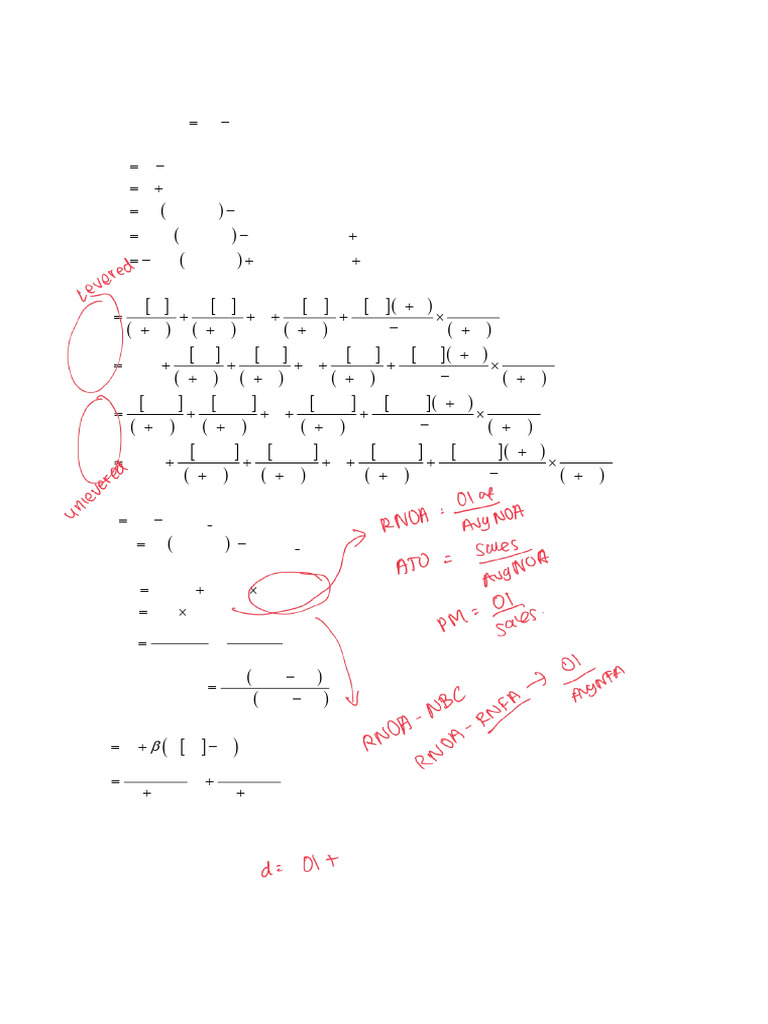 = −
= −
= +
= ( ) −
= ( ) − +
= − ( ) + +
Levered
= [ ] / ( + ) + [ ] / ( + ) + + [ ] / ( + ) + [ ] ( + ) / − × / ( + )
= + [ ] / ( + ) + [ ] / ( + ) + + [ ] / ( + ) + [ ] ( + ) / − × / ( + )
= [ ] / ( + ) + [ ] / ( + ) + + [ ] / ( + ) + [ ] ( + ) / − × / ( + )
= + [ ] / ( + ) + [ ] / ( + ) + + [ ] / ( + ) + [ ] ( + ) / − × / ( + )
unlevered
= − _
= ( ) − _
RNOA = OI / Avg NOA
ATO = sales / Avg NOA
PM = OI / sales.
= + ×
= ×
=
= ( − ) / ( − )
RNOA - NBC
RNOA - RNFA → OI / Avg NFA
= + β ( [ ] − )
= / + + / +
d = OI +